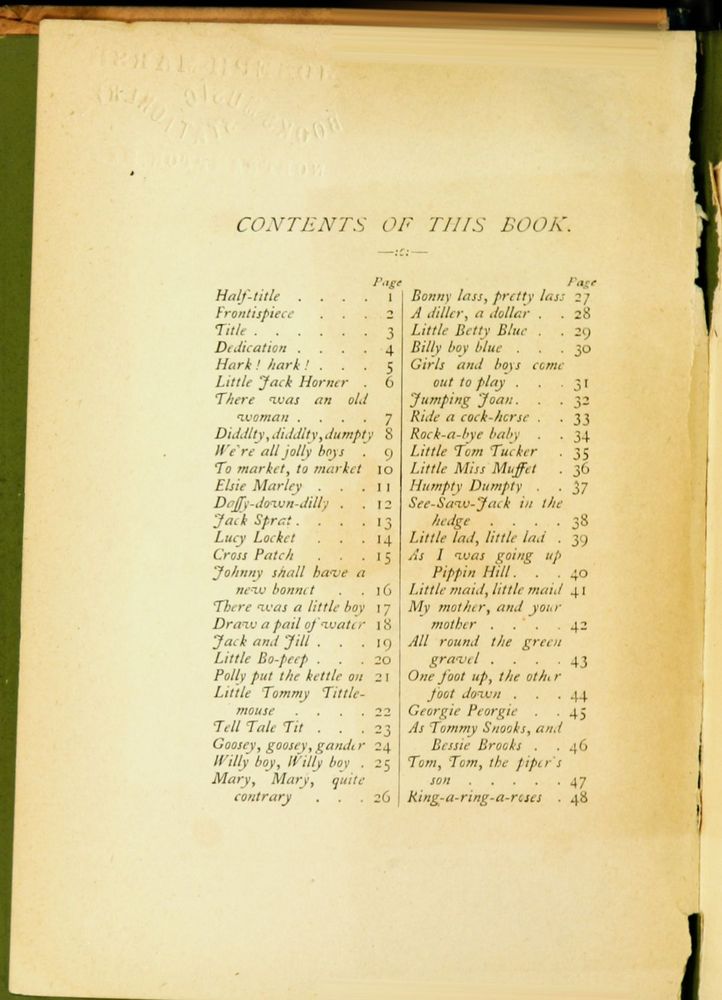 CONTENTS OF THIS BOOK.
—:o:—
Page
Half-title . . . . 1
Frontispiece . . . 2
Title . . . . . . 3
Dedication . . . . 4
Hark! hark! . . . 5
Little Jack Horner . 6
There was an old
woman . . . . 7
Diddlty, diddlty, dumpty 8
We're all jolly boys . 9
To market, to market 10
Elsie Marley . . . 11
Daffy-down-dilly . . 12
Jack Sprat . . . . 13
Lucy Locket . . . 14
Cross Patch . . . 15
Johnny shall have a
new bonnet . . 16
There was a little boy 17
Draw a pail of water 18
Jack and Jill . . . 19
Little Bo-peep . . . 20
Polly put the kettle on 21
Little Tommy Tittle-
mouse . . . . 22
Tell Tale Tit . . . 23
Goosey, goosey, gander 24
Willy boy, Willy boy . 25
Mary, Mary, quite
contrary . . . 26
Page
Bonny lass, pretty lass 27
A diller, a dollar . . 28
Little Betty Blue . . 29
Billy boy blue . . . 30
Girls and boys come
out to play . . . 31
Jumping Joan . . . 32
Ride a cock-horse . . 33
Rock-a-bye baby . . 34
Little Tom Tucker . 35
Little Miss Muffet . 36
Humpty Dumpty . . 37
See-Saw-Jack in the
hedge . . . . 38
Little lad, little lad . 39
As I was going up
Pippin Hill . . . 40
Little maid, little maid 41
My mother, and your
mother . . . . 42
All round the green
gravel . . . . 43
One foot up, the other
foot down . . . 44
Georgie Peorgie . . 45
As Tommy Snooks, and
Bessie Brooks . . 46
Tom, Tom, the piper's
son . . . . . 47
Ring-a-ring-a-roses . 48